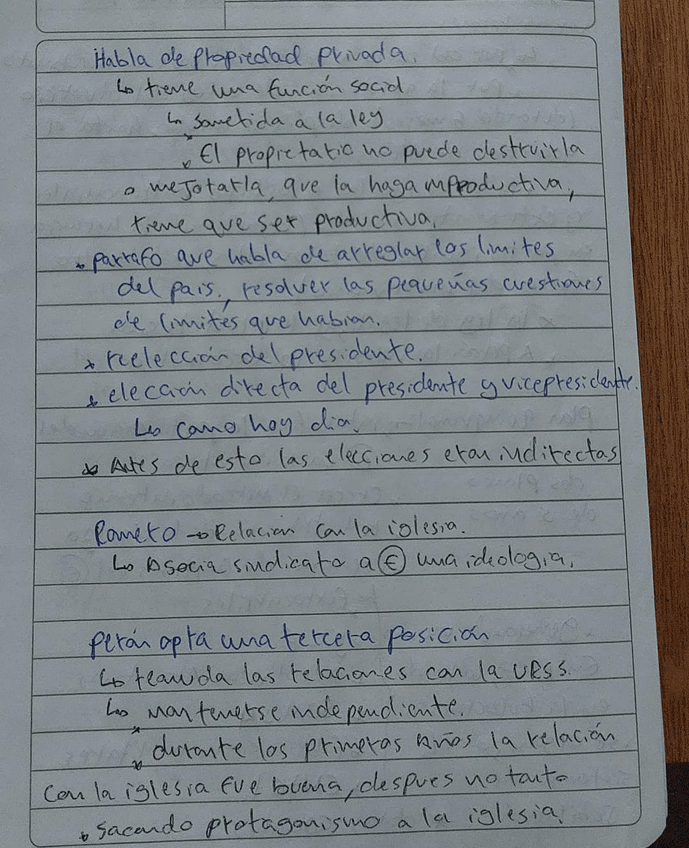 Habla de propiedad privada.
↳ tiene una función social
↳ sometida a la ley
* El propietario no puede destruirla
o mejorarla, que la haga improductiva,
tiene que ser productiva.
* parrafo que habla de arreglar los limites
del pais, resolver las pequeñas cuestiones
de limites que habian.
* reelección del presidente.
* elección directa del presidente y vicepresidente.
↳ como hoy dia.
* Antes de esto las elecciones eran indirectas
Romero → Relación con la iglesia.
↳ Asocia sindicato a Ⓔ una ideologia.
perón opta una tercera posición
↳ reanuda las relaciones con la URSS.
↳ mantenerse independiente.
* durante los primeros Años la relación
con la iglesia fue buena, despues no tanto
* sacando protagonismo a la iglesia.